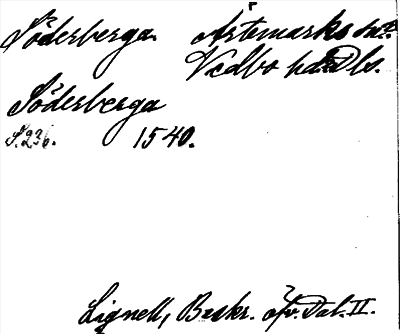 Söderberga. Ärtemarks sn.
Vedbo hd. Dls.
Söderberga
S. 236. 1540.
Lignell, Beskr. öfv. Dal. II.